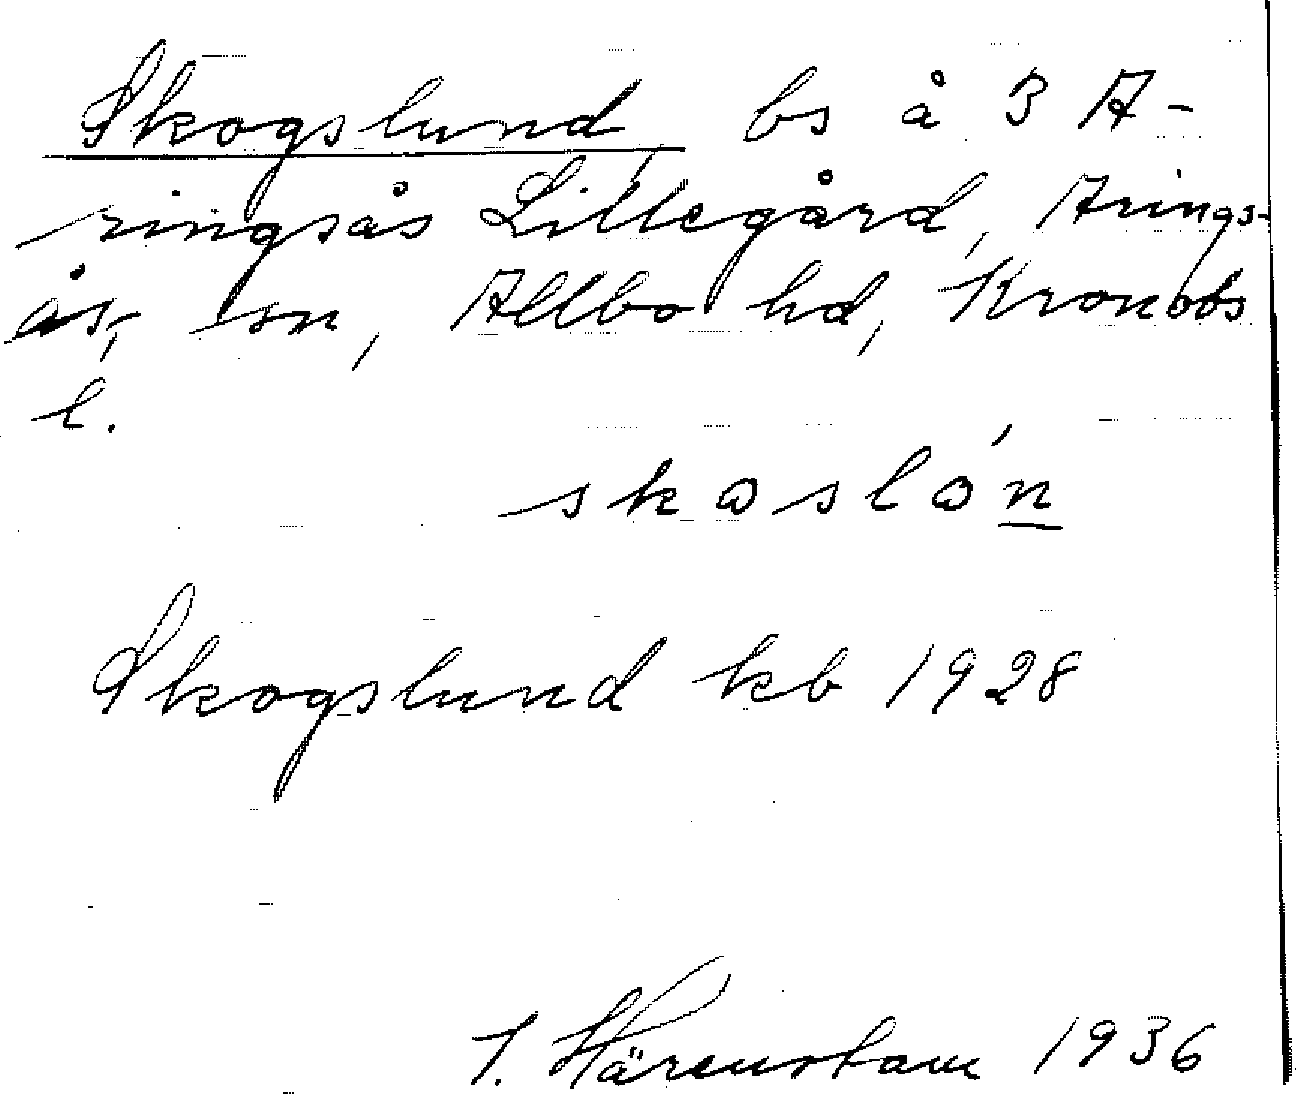 Skogslund bs å 3 A-
ringsås Lillegård, Arings-
ås, sn, Allbo hd, Kronobs
l.
skoslón
Skogslund kb 1928
I. Härenstam 1936